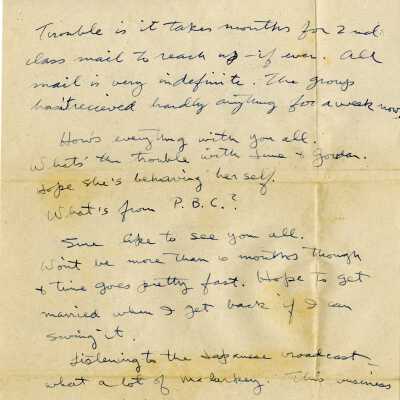 Trouble is it takes months for 2nd
class mail to reach us - if ever. All
mail is very indefinite. The group
hasn't recieved hardly anything for a week now.
How's everything with you all.
Whats' the trouble with June & Gordon.
Hope she's behaving herself.
What's from P.B.C.?
Sure like to see you all.
Won't be more than 6 months though
& time goes pretty fast. Hope to get
married when I get back if I can
swing it.
Listening to the Japanese broadcast
what a lot of malarkey. This business